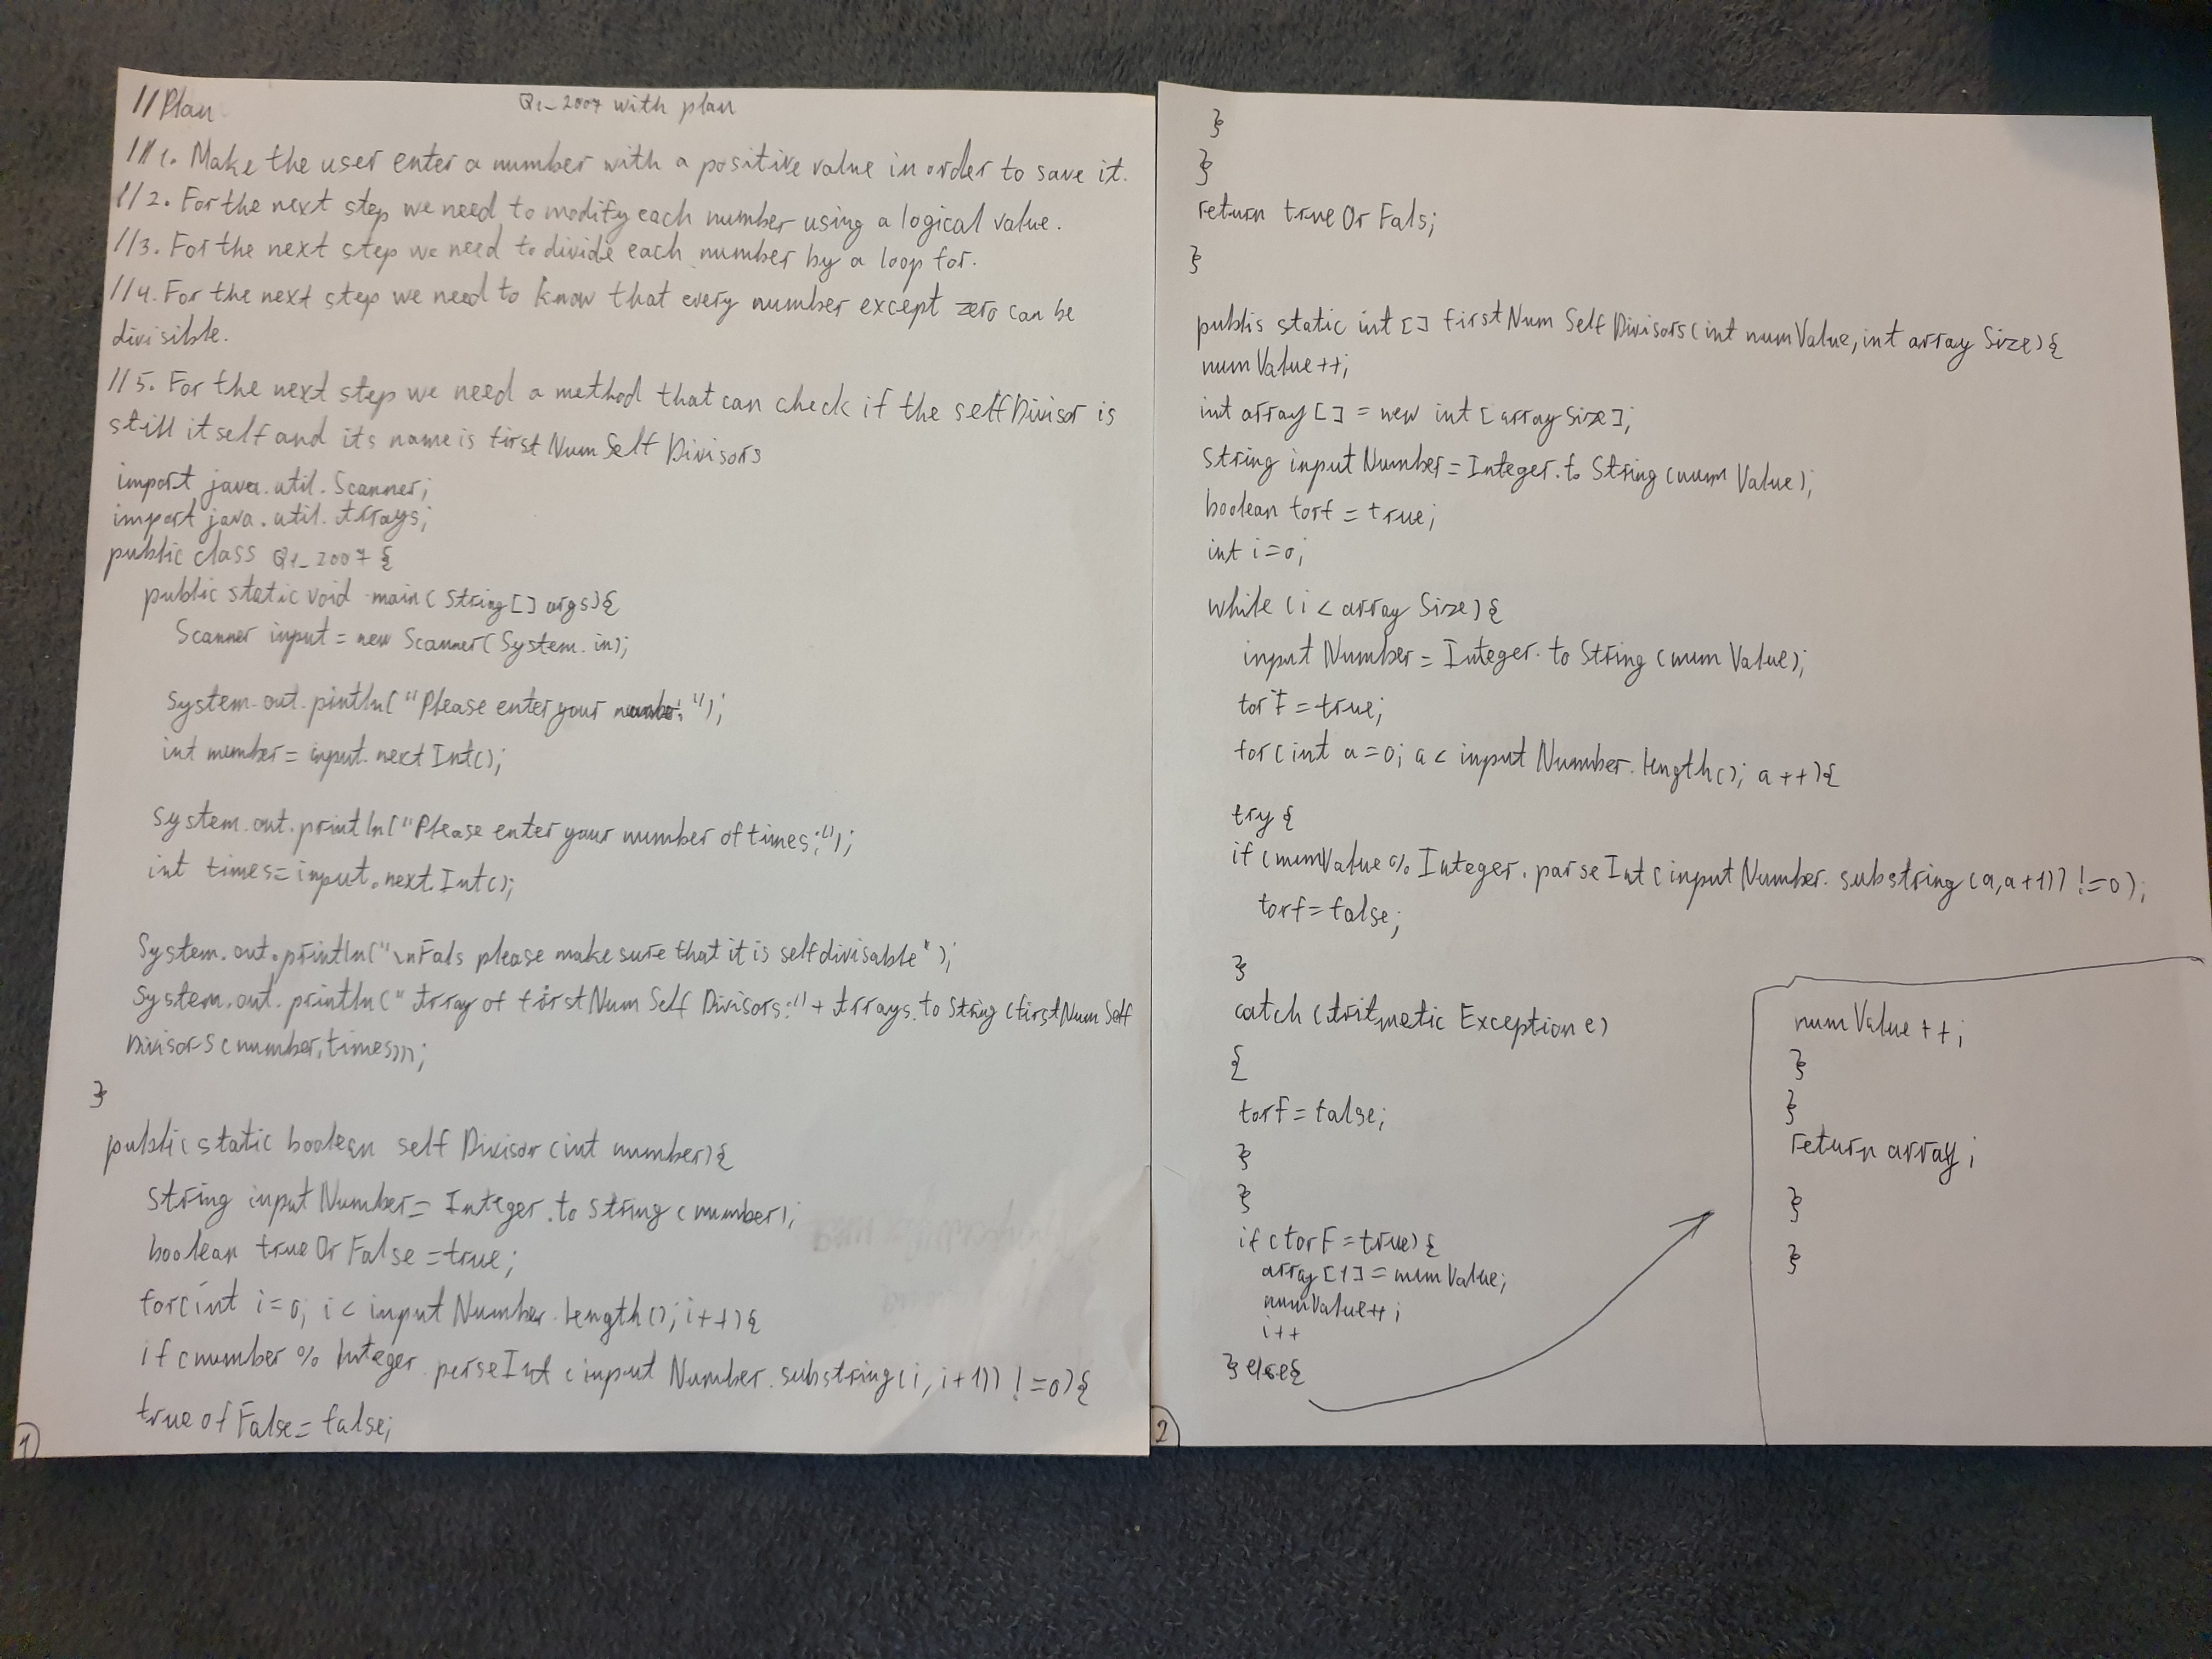 Q1_2007 with plan
//Plan
//1. Make the user enter a number with a positive value in order to save it.
//2. For the next step we need to modify each number using a logical value.
//3. For the next step we need to divide each number by a loop for.
//4. For the next step we need to know that every number except zero can be
divisible.
//5. For the next step we need a method that can check if the selfDivisor is
still itself and its name is firstNumSelfDivisors
import java.util.Scanner;
import java.util.Arrays;
public class Q1_2007 {
public static void main(String[] args){
Scanner input = new Scanner(System.in);
System.out.println("Please enter your number:");
int number = input.nextInt();
System.out.println("Please enter your number of times:");
int times = input.nextInt();
System.out.println("\nFals please make sure that it is selfdivisiable");
System.out.println("Array of firstNumSelfDivisors:" + Arrays.toString(firstNumSelf
Divisors(number,times)));
}
public static boolean selfDivisor(int number){
String inputNumber = Integer.toString(number);
boolean trueOrFalse = true;
for(int i=0; i < inputNumber.length(); i++){
if(number % Integer.parseInt(inputNumber.substring(i, i+1)) !=0){
trueOfFalse = false;
1)
}
}
return trueOrFals;
}
public static int[] firstNumSelfDivisors(int numValue, int arraySize){
numValue++;
int array[] = new int[arraySize];
String inputNumber = Integer.toString(numValue);
boolean torf = true;
int i=0;
while(i < arraySize){
inputNumber = Integer.toString(numValue);
torf = true;
for(int a=0; a < inputNumber.length(); a++){
try{
if(numValue % Integer.parseInt(inputNumber.substring(a, a+1)) !=0);
torf = false;
}
catch(AritmeticException e)
{
torf = false;
}
}
if(torf = true){
array[i] = numValue;
numValue++;
i++
}else{
numValue++;
}
}
return array;
}
}
2